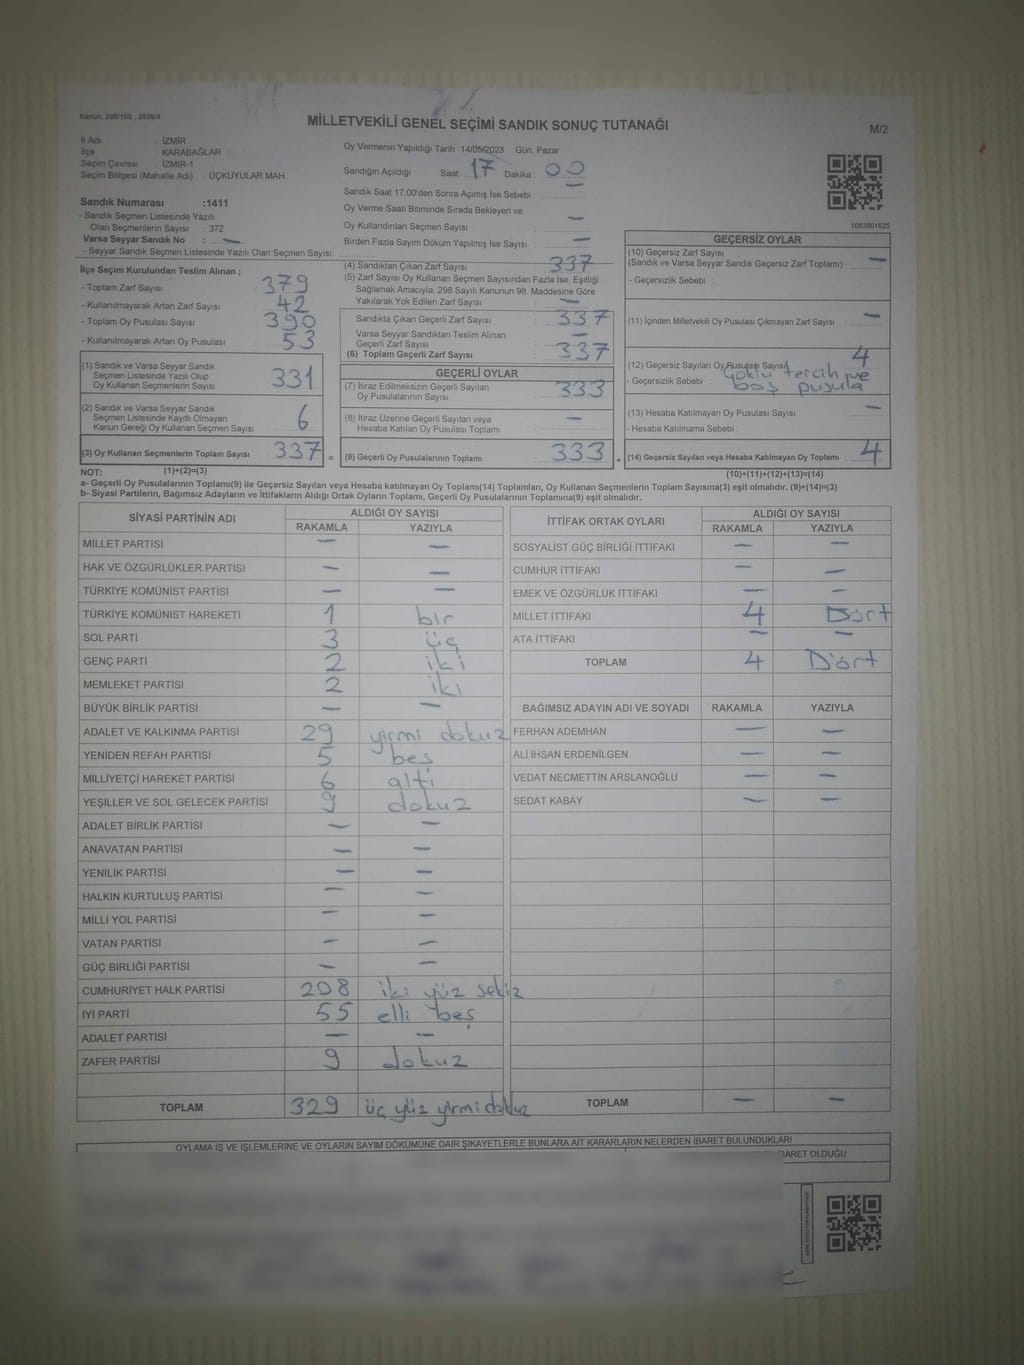 Kanun, 298/105 , 2839/4
MİLLETVEKİLİ GENEL SEÇİMİ SANDIK SONUÇ TUTANAĞI
M/2
İl Adı : İZMİR
İlçe : KARABAĞLAR
Seçim Çevresi : İZMİR-1
Seçim Bölgesi (Mahalle Adı) : UÇKUYULAR MAH.
Sandık Numarası :1411
- Sandık Seçmen Listesinde Yazılı
Olan Seçmenlerin Sayısı : 372
Varsa Seyyar Sandık No : —
- Seyyar Sandık Seçmen Listesinde Yazılı Olan Seçmen Sayısı:
Oy Vermenin Yapıldığı Tarih : 14/05/2023 Gün: Pazar
Sandığın Açıldığı Saat: 17 Dakika : 00
Sandık Saat 17:00'den Sonra Açımış İse Sebebi : —
Oy Verme Saati Bitiminde Sırada Bekleyen ve
Oy Kullandırılan Seçmen Sayısı : —
Birden Fazla Sayım Döküm Yapılmış İse Sayısı : —
1083801625
İlçe Seçim Kurulundan Teslim Alınan ;
- Toplam Zarf Sayısı : 379
- Kullanılmayarak Artan Zarf Sayısı : 42
- Toplam Oy Pusulası Sayısı : 390
- Kullanılmayarak Artan Oy Pusulası : 53
(1) Sandık ve Varsa Seyyar Sandık
Seçmen Listesinde Yazılı Olup
Oy Kullanan Seçmenlerin Sayısı : 331
(2) Sandık ve Varsa Seyyar Sandık
Seçmen Listesinde Kayıtlı Olmayan
Kanun Gereği Oy Kullanan Seçmen Sayısı : 6
(3) Oy Kullanan Seçmenlerin Toplam Sayısı : 337 =
(4) Sandıktan Çıkan Zarf Sayısı : 337
(5) Zarf Sayısı, Oy Kullanan Seçmen Sayısından Fazla İse, Eşitliği
Sağlamak Amacıyla, 298 Sayılı Kanunun 98. Maddesine Göre
Yakılarak Yok Edilen Zarf Sayısı : —
Sandıkla Çıkan Geçerli Zarf Sayısı : 337
Varsa Seyyar Sandıktan Teslim Alınan
Geçerli Zarf Sayısı : —
(6) Toplam Geçerli Zarf Sayısı : 337
GEÇERLİ OYLAR
(7) İtiraz Edilmeksizin Geçerli Sayılan
Oy Pusulalarının Sayısı : 333
(8) İtiraz Üzerine Geçerli Sayılan veya
Hesaba Katılan Oy Pusulası Toplamı : —
(9) Geçerli Oy Pusulalarının Toplamı : 333 +
GEÇERSİZ OYLAR
(10) Geçersiz Zarf Sayısı
(Sandık ve Varsa Seyyar Sandık Geçersiz Zarf Toplamı) : —
- Geçersizlik Sebebi :
(11) İçinden Milletvekili Oy Pusulası Çıkmayan Zarf Sayısı : —
(12) Geçersiz Sayılan Oy Pusulası Sayısı : 4
- Geçersizlik Sebebi : Çoklu tercih ve
boş pusula
(13) Hesaba Katılmayan Oy Pusulası Sayısı : —
- Hesaba Katılmama Sebebi :
(14) Geçersiz Sayılan veya Hesaba Katılmayan Oy Toplamı : 4
NOT: (1)+(2)=(3) (10)+(11)+(12)+(13)=(14)
a- Geçerli Oy Pusulalarının Toplamı(9) ile Geçersiz Sayılan veya Hesaba katılmayan Oy Toplamı(14) Toplamları, Oy Kullanan Seçmenlerin Toplam Sayısına(3) eşit olmalıdır. (9)+(14)=(3)
b- Siyasi Partilerin, Bağımsız Adayların ve İttifakların Aldığı Ortak Oyların Toplamı, Geçerli Oy Pusulalarının Toplamına(9) eşit olmalıdır.
SİYASİ PARTİNİN ADI ALDIĞI OY SAYISI
RAKAMLA YAZIYLA
MİLLET PARTİSİ — —
HAK VE ÖZGÜRLÜKLER PARTİSİ — —
TÜRKİYE KOMÜNİST PARTİSİ — —
TÜRKİYE KOMÜNİST HAREKETİ 1 bir
SOL PARTİ 3 üç
GENÇ PARTİ 2 iki
MEMLEKET PARTİSİ 2 iki
BÜYÜK BİRLİK PARTİSİ — —
ADALET VE KALKINMA PARTİSİ 29 yirmi dokuz
YENİDEN REFAH PARTİSİ 5 beş
MİLLİYETÇİ HAREKET PARTİSİ 6 altı
YEŞİLLER VE SOL GELECEK PARTİSİ 9 dokuz
ADALET BİRLİK PARTİSİ — —
ANAVATAN PARTİSİ — —
YENİLİK PARTİSİ — —
HALKIN KURTULUŞ PARTİSİ — —
MİLLİ YOL PARTİSİ — —
VATAN PARTİSİ — —
GÜÇ BİRLİĞİ PARTİSİ — —
CUMHURİYET HALK PARTİSİ 208 iki yüz sekiz
İYİ PARTİ 55 elli beş
ADALET PARTİSİ — —
ZAFER PARTİSİ 9 dokuz
TOPLAM 329 üç yüz yirmi dokuz
İTTİFAK ORTAK OYLARI ALDIĞI OY SAYISI
RAKAMLA YAZIYLA
SOSYALİST GÜÇ BİRLİĞİ İTTİFAKI — —
CUMHUR İTTİFAKI — —
EMEK VE ÖZGÜRLÜK İTTİFAKI — —
MİLLET İTTİFAKI 4 Dört
ATA İTTİFAKI — —
TOPLAM 4 Dört
BAĞIMSIZ ADAYIN ADI VE SOYADI RAKAMLA YAZIYLA
FERHAN ADEMHAN — —
ALİ İHSAN ERDENİLGEN — —
VEDAT NECMETTİN ARSLANOĞLU — —
SEDAT KABAY — —
TOPLAM — —
OYLAMA İŞ VE İŞLEMLERİNE VE OYLARIN SAYIM DÖKÜMÜNE DAİR ŞİKAYETLERLE BUNLARA AİT KARARLARIN NELERDEN İBARET BULUNDUKLARI
BARET OLDUĞU